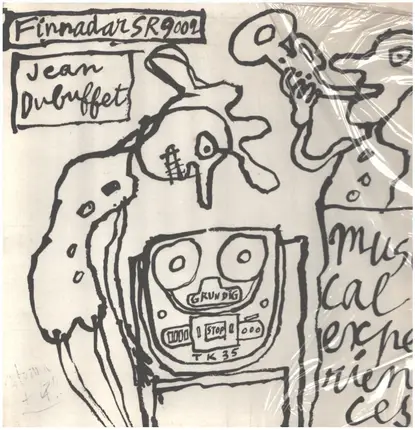 Finnadar SR9002
Jean
Dubuffet
GRUNDIG
STOP
TK 35
mus
cal
expe
rien
ces